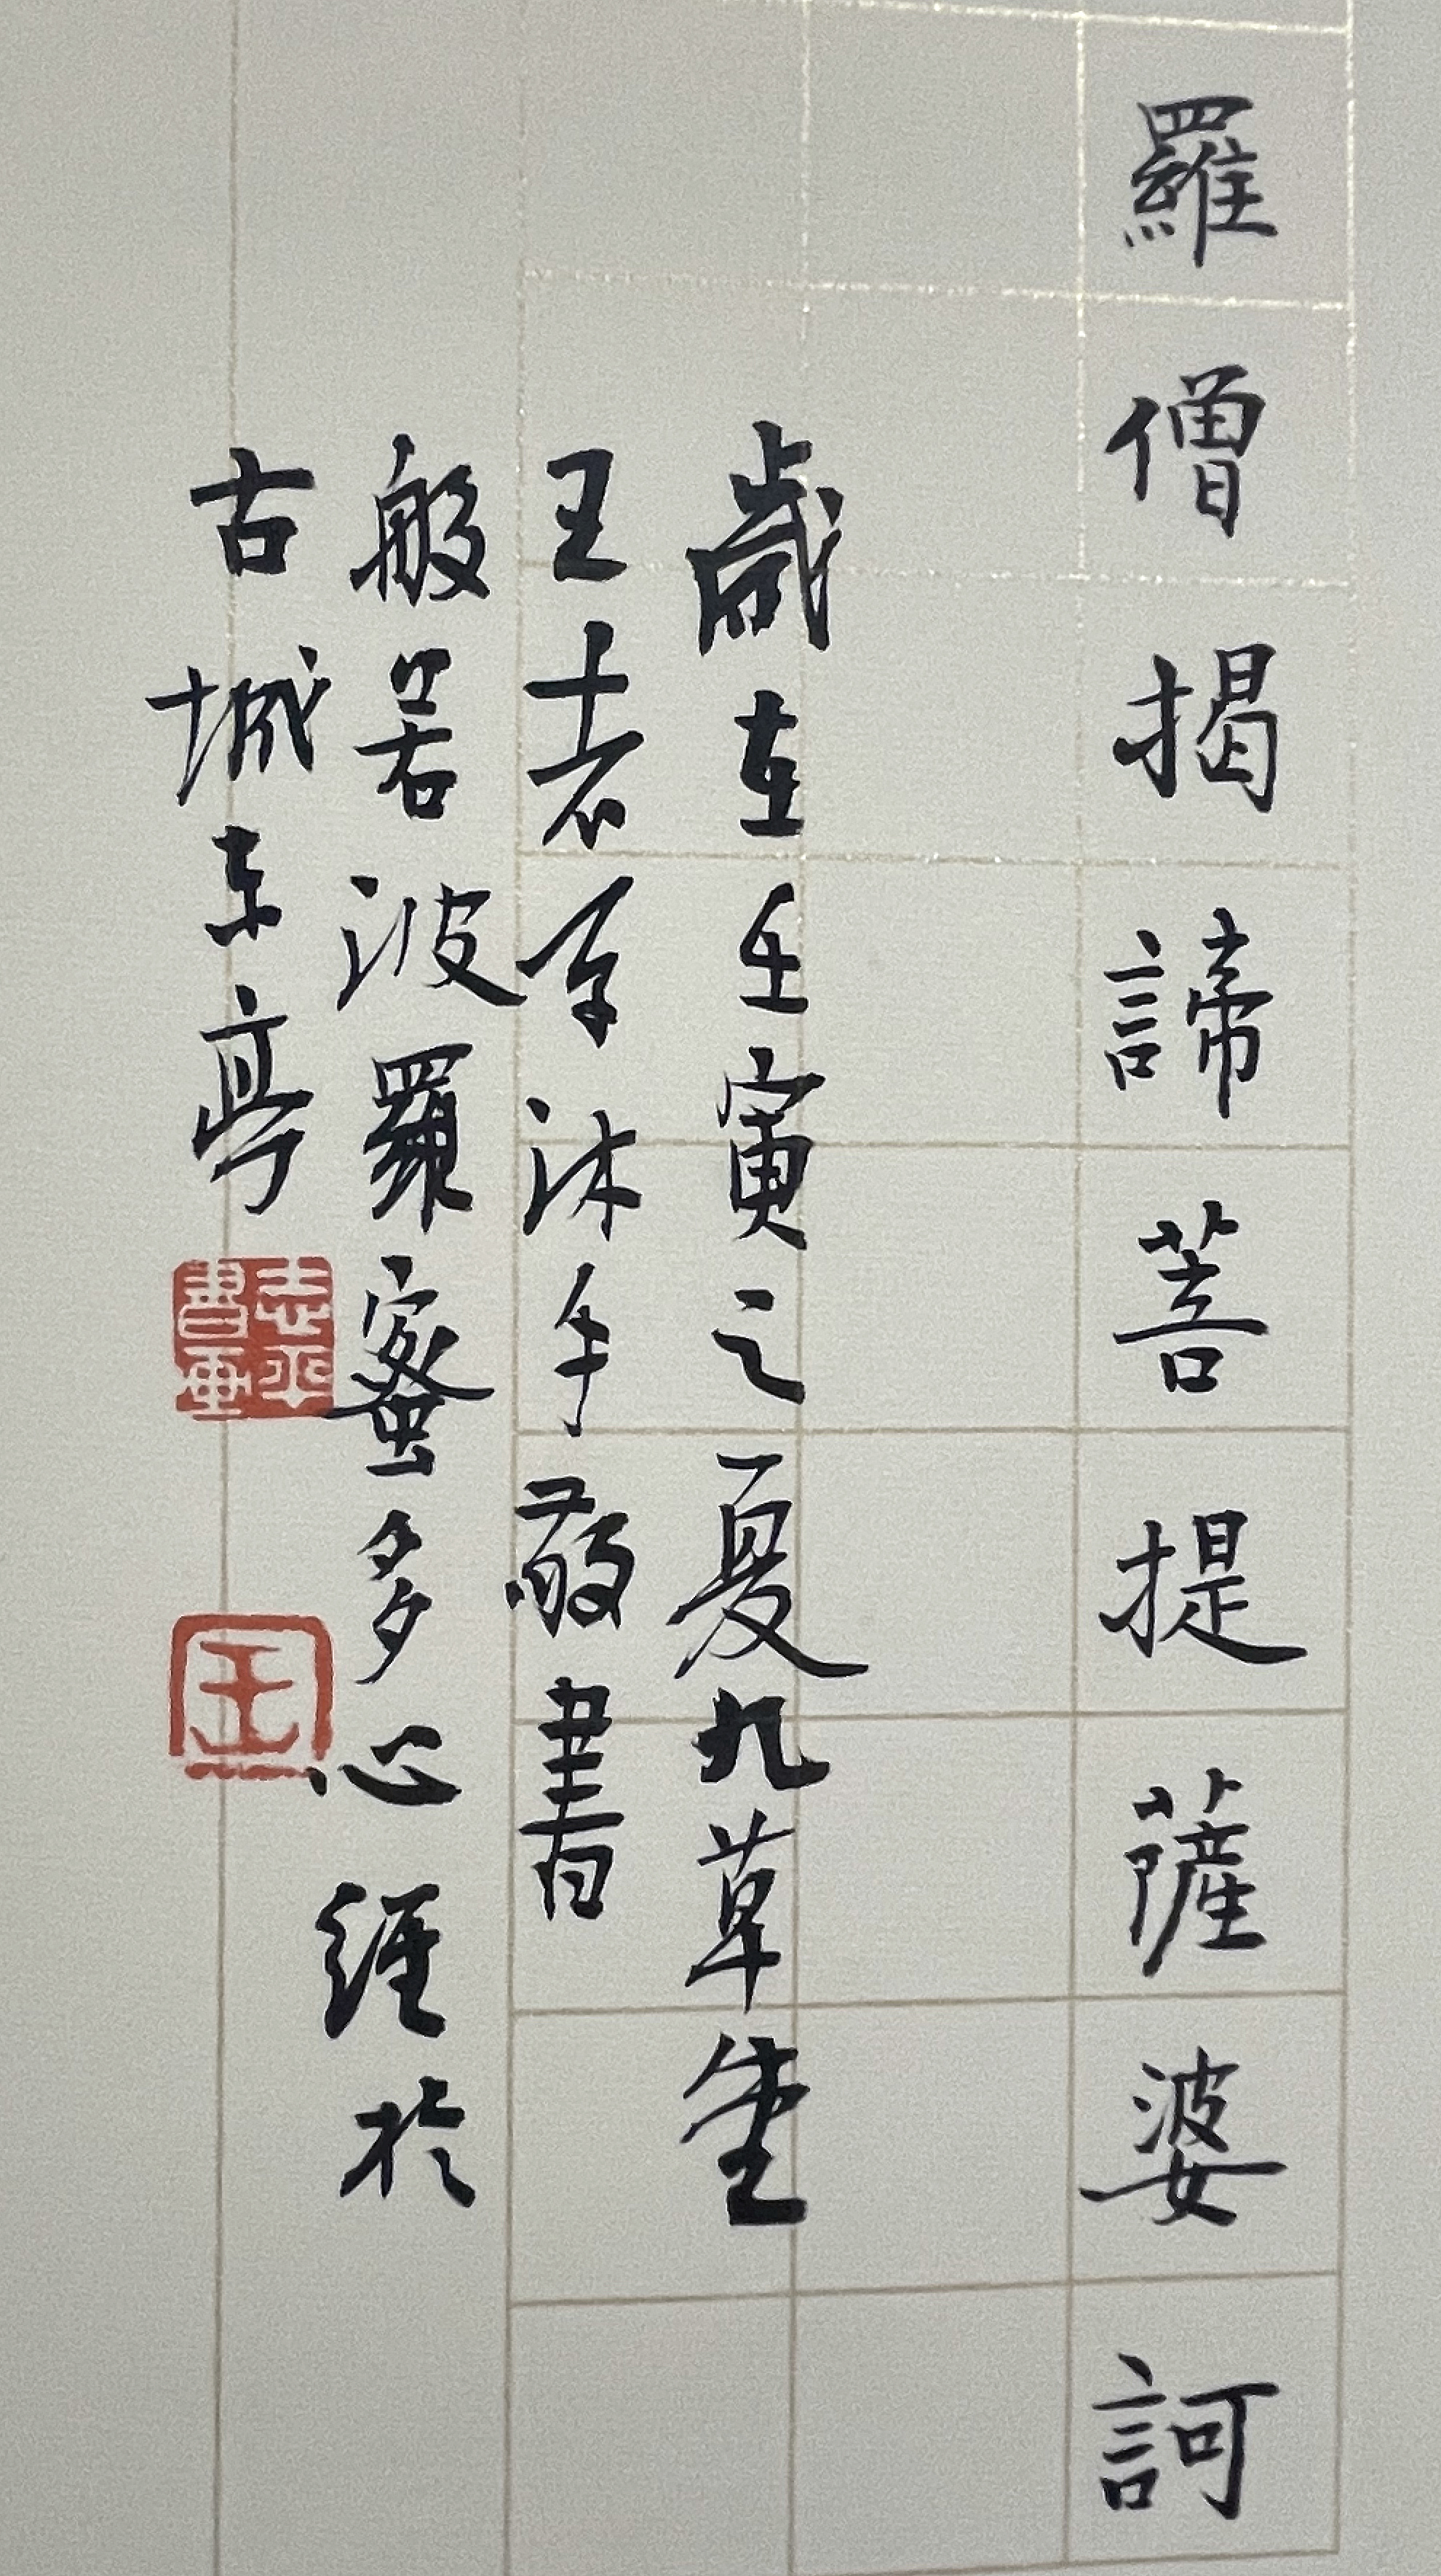 羅僧揭諦菩提薩婆訶
歲在壬寅之夏九草堂
王志平沐手敬書
般若波羅蜜多心經於
古城東亭
志平書画
王